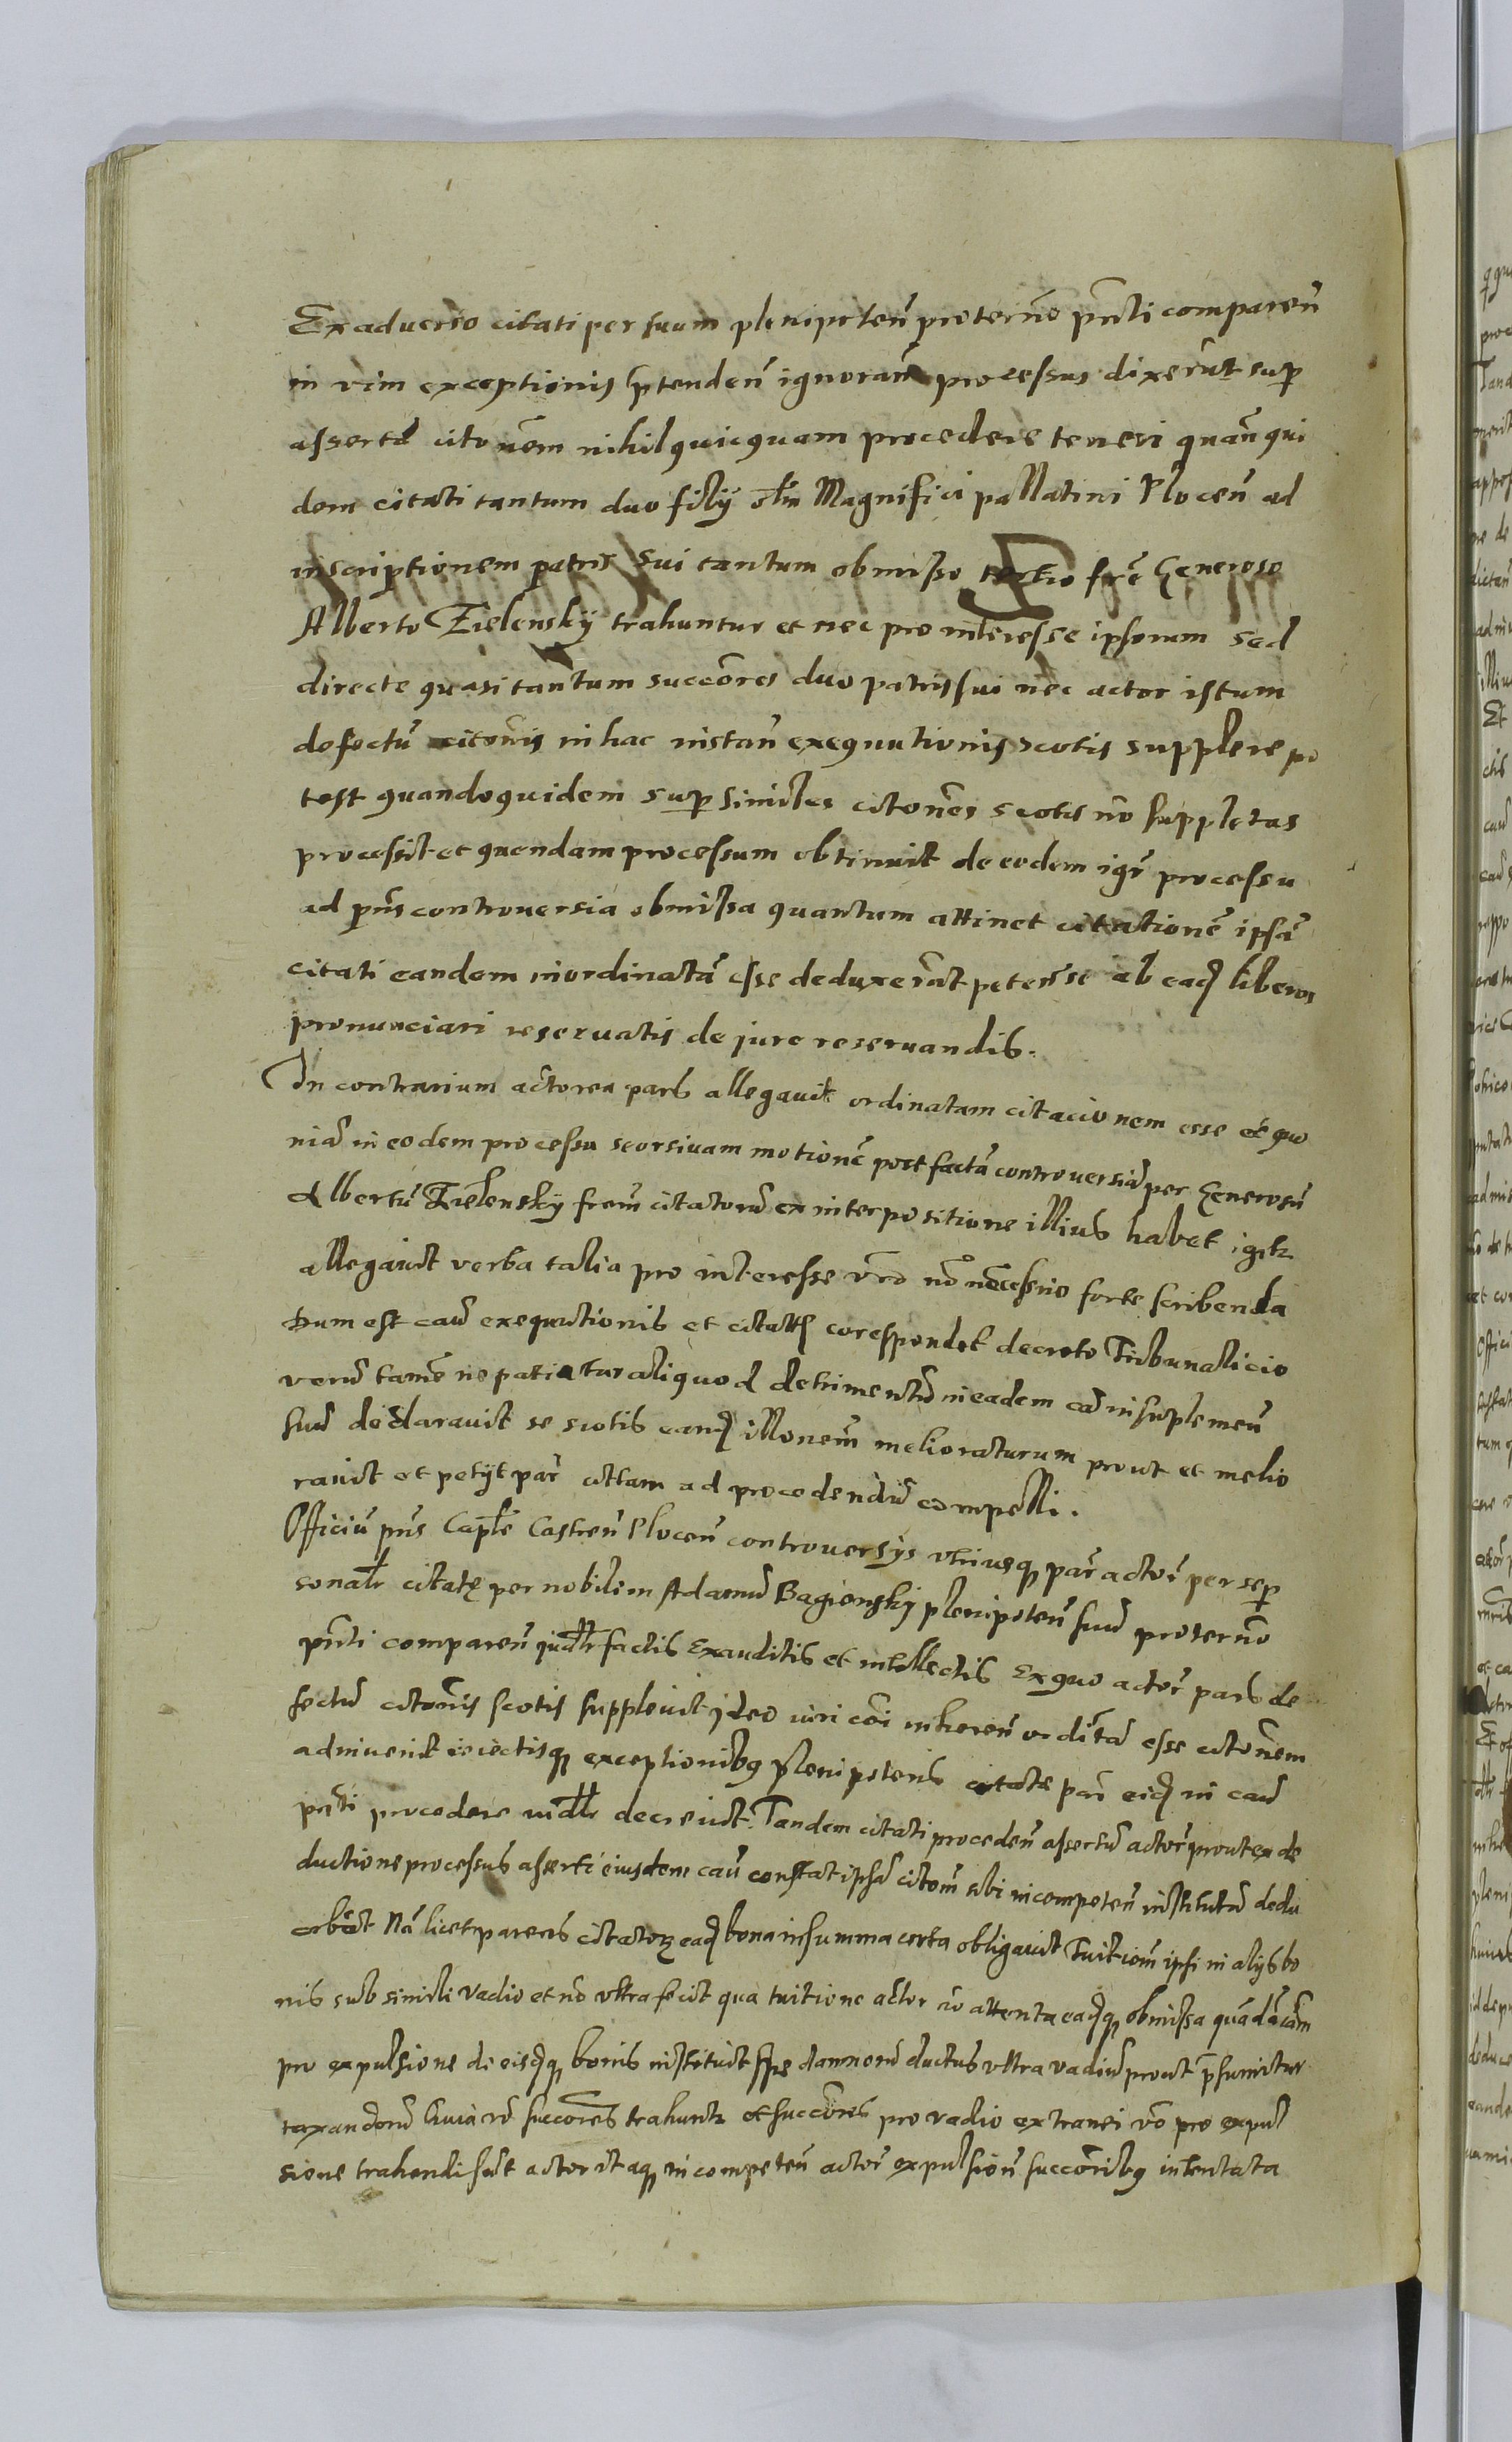 Ex aduerso citati per suum plenipoten̄ pro termo pn̄ti comparen̄
in vim exceptionis p̄tenden̄ ignoran̄ processus dixerūt sup
assertā citonem nihil quicquam procedere teneri quan̄ qui
dem citati tantum duo filÿ olim Magnifici pallatini Plocen̄ ad
inscriptionem patris sui tantum obmisso tertio fr̄e Generoso
Alberto Zielenskÿ trahuntur et nec pro interesse ipsorum sed
directe quasi tantum succōres duo patris sui nec actor istum
defectū citonis in hac instan̄ exequutionis scotis supplere po
test quandoquidem sup similes citones scotis nō suppletas
processit et quendam processum obtinuit de eodem igr̄ processu
ad pn̄s controuersia obmissa quantum attinet citationē ipsā
citati eandem inordinatā esse deduxerūt peten̄ se ab eaq̄ liberos
pronunciari reseruatis de jure reseruandis.
In contrarium actorea pars allegauit ordinatam citacionem esse et quo
niā in eodem processu seorsiuam motionē post factā controuersiā per Generosū
Albertū Zielenskÿ frēm citatorū ex interpositione illius habet igitr
allegauit verba talia pro interesse vrō nō necessrio forte scribenda
dum est cau̅ exequutionis et citatq̄ corespondet decreto Tribunalicio
verū tamē ne patiatur aliquod detrimentū in eadem caū in suplemen̄
suū declarauit se scotis eanq̄ illonem melioraturum prout et melio
rauit et petÿt par̄ cittam ad procedendū compelli.
Officiū pn̄s Capt̄le Castren̄ Plocen̄ controuersÿs vtriusq̨ par̄ actor̄ per se p̱
sonalr̄ citatę per nobilem Adamū Bagienskÿ plenipoten̄ suū pro termo
pn̄ti comparen̄ judlr̄ factis exauditis et intellectis Ex quo actor̄ pars de
fectū citonis scotis suppleuit jdeo iuri cōi inheren̄ ordītā esse citonem
adinuenit reiectisq̨ exceptionibꝯ plenipotenis citate par̄ eiq̄ in caū
pn̄ti procedere iudlr̄ decreuit. Tandem citati proceden̄ assertū actor̄ prout ex de
ductione processus asserti eiusdem cau̅ constat ipsā citonē sibi incompeten̄ institutā dedu
xerūt Nā licet parens citatorꝫ eaq̄ bona in summa certa obligauit Tuitionē ipsi in alÿs bo
nis sub simili vadio et nō vltra fecit qua tuitione actor nō attenta eaq̄q̨ obmissa quādā cām
pro expulsione de eisq̄q̨ bonis instituit spe damnorū ductus vltra vadiū prout p̄sumitur
taxandorū Quia vō succōres trahuntꝫ et succōres pro vadio extranei vō pro expul
sione trahendi sūt actor itaq̨ incompeten̄ actor̄ expulsion̄ succōribꝯ intentata